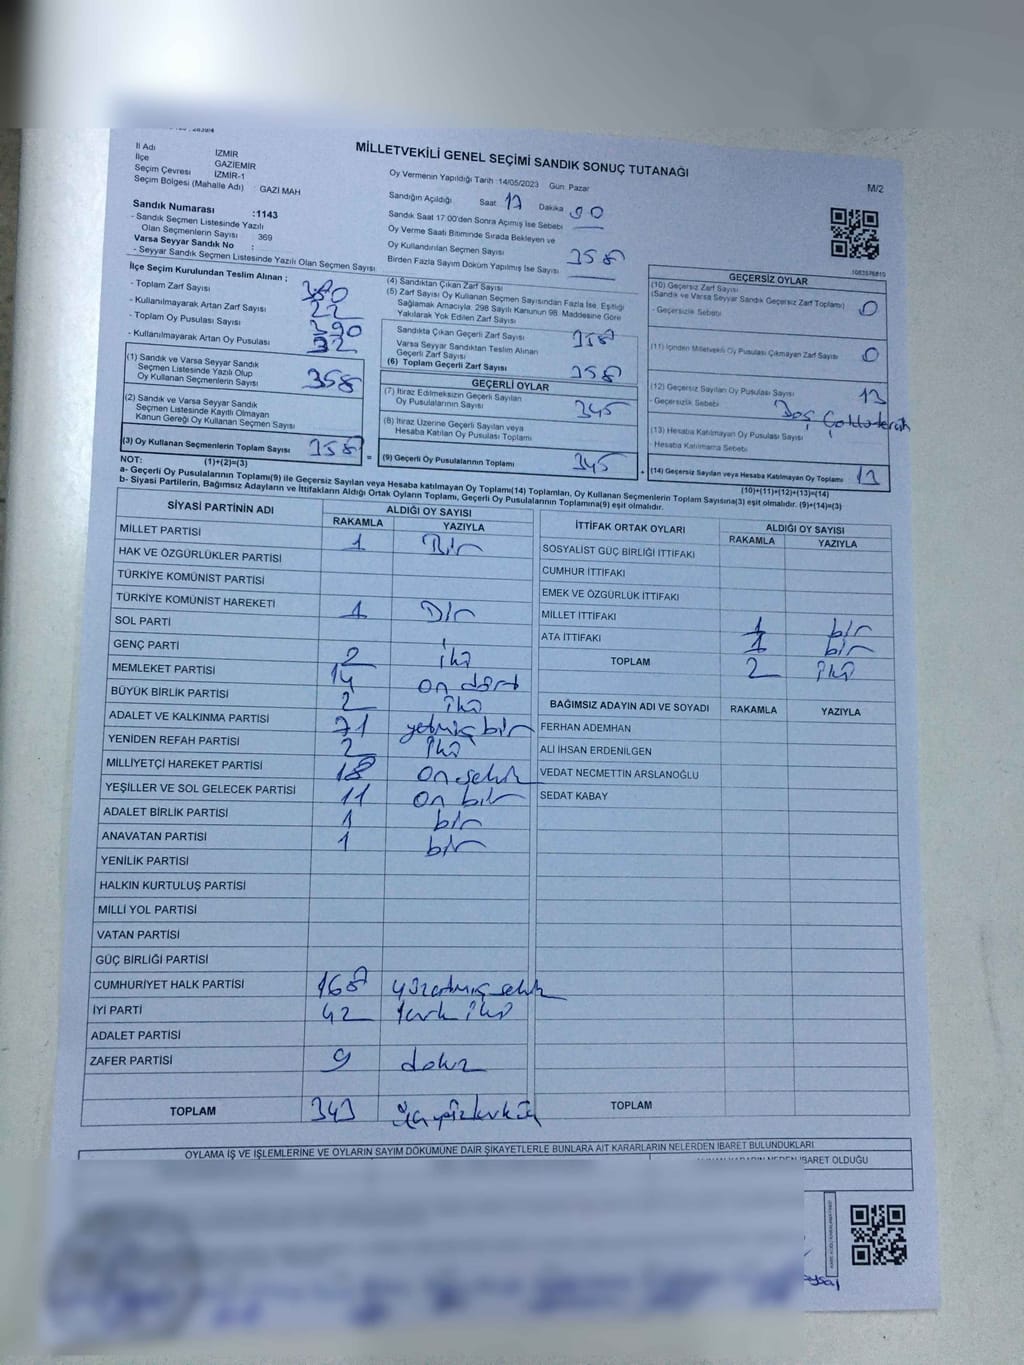 MİLLETVEKİLİ GENEL SEÇİMİ SANDIK SONUÇ TUTANAĞI
M/2
İl Adı İZMİR
İlçe GAZİEMİR
Seçim Çevresi İZMİR-1
Seçim Bölgesi (Mahalle Adı) : GAZİ MAH
Sandık Numarası :1143
- Sandık Seçmen Listesinde Yazılı
Olan Seçmenlerin Sayısı 369
Varsa Seyyar Sandık No :
- Seyyar Sandık Seçmen Listesinde Yazılı Olan Seçmen Sayısı
Oy Vermenin Yapıldığı Tarih :14/05/2023 Gün: Pazar
Sandığın Açıldığı Saat 17 Dakika 00
Sandık Saat 17:00'den Sonra Açılmış İse Sebebi
Oy Verme Saati Bitiminde Sırada Bekleyen ve
Oy Kullandırılan Seçmen Sayısı 358
Birden Fazla Sayım Döküm Yapılmış İse Sayısı
İlçe Seçim Kurulundan Teslim Alınan :
- Toplam Zarf Sayısı 380
- Kullanılmayarak Artan Zarf Sayısı 22
- Toplam Oy Pusulası Sayısı 390
- Kullanılmayarak Artan Oy Pusulası 32
(1) Sandık ve Varsa Seyyar Sandık
Seçmen Listesinde Yazılı Olup
Oy Kullanan Seçmenlerin Sayısı 358
(2) Sandık ve Varsa Seyyar Sandık
Seçmen Listesinde Kayıtlı Olmayan
Kanun Gereği Oy Kullanan Seçmen Sayısı
(3) Oy Kullanan Seçmenlerin Toplam Sayısı 358
(1)+(2)=(3)
(4) Sandıktan Çıkan Zarf Sayısı
(5) Zarf Sayısı Oy Kullanan Seçmen Sayısından Fazla İse, Eşitliği
Sağlamak Amacıyla, 298 Sayılı Kanunun 98. Maddesine Göre
Yakılarak Yok Edilen Zarf Sayısı
Sandıkta Çıkan Geçerli Zarf Sayısı 358
Varsa Seyyar Sandıktan Teslim Alınan
Geçerli Zarf Sayısı
(6) Toplam Geçerli Zarf Sayısı 358
GEÇERLİ OYLAR
(7) İtiraz Edilmeksizin Geçerli Sayılan
Oy Pusulalarının Sayısı 345
(8) İtiraz Üzerine Geçerli Sayılan veya
Hesaba Katılan Oy Pusulası Toplamı
(9) Geçerli Oy Pusulalarının Toplamı 345
1083576810
GEÇERSİZ OYLAR
(10) Geçersiz Zarf Sayısı
(Sandık ve Varsa Seyyar Sandık Geçersiz Zarf Toplamı) 0
- Geçersizlik Sebebi
(11) İçinden Milletvekili Oy Pusulası Çıkmayan Zarf Sayısı 0
(12) Geçersiz Sayılan Oy Pusulası Sayısı 13
- Geçersizlik Sebebi
(13) Hesaba Katılmayan Oy Pusulası Sayısı
- Hesaba Katılmama Sebebi
(14) Geçersiz Sayılan veya Hesaba Katılmayan Oy Toplamı 13
(10)+(11)+(12)+(13)=(14)
NOT:
a- Geçerli Oy Pusulalarının Toplamı(9) ile Geçersiz Sayılan veya Hesaba Katılmayan Oy Toplamı(14) Toplamları, Oy Kullanan Seçmenlerin Toplam Sayısına(3) eşit olmalıdır. (9)+(14)=(3)
b- Siyasi Partilerin, Bağımsız Adayların ve İttifakların Aldığı Ortak Oyların Toplamı, Geçerli Oy Pusulalarının Toplamına(9) eşit olmalıdır.
SİYASİ PARTİNİN ADI ALDIĞI OY SAYISI
RAKAMLA YAZIYLA
MİLLET PARTİSİ 1 Bir
HAK VE ÖZGÜRLÜKLER PARTİSİ
TÜRKİYE KOMÜNİST PARTİSİ
TÜRKİYE KOMÜNİST HAREKETİ 1 Bir
SOL PARTİ
GENÇ PARTİ 2 iki
MEMLEKET PARTİSİ 14 on dört
BÜYÜK BİRLİK PARTİSİ 2 iki
ADALET VE KALKINMA PARTİSİ 71 yetmiş bir
YENİDEN REFAH PARTİSİ 2 iki
MİLLİYETÇİ HAREKET PARTİSİ 18 on sekiz
YEŞİLLER VE SOL GELECEK PARTİSİ 11 on bir
ADALET BİRLİK PARTİSİ 1 bir
ANAVATAN PARTİSİ 1 bir
YENİLİK PARTİSİ
HALKIN KURTULUŞ PARTİSİ
MİLLİ YOL PARTİSİ
VATAN PARTİSİ
GÜÇ BİRLİĞİ PARTİSİ
CUMHURİYET HALK PARTİSİ 168 yüzatmış sekiz
İYİ PARTİ 42 kırk iki
ADALET PARTİSİ
ZAFER PARTİSİ 9 dokuz
TOPLAM 343 üçyüzkırküç
İTTİFAK ORTAK OYLARI ALDIĞI OY SAYISI
RAKAMLA YAZIYLA
SOSYALİST GÜÇ BİRLİĞİ İTTİFAKI
CUMHUR İTTİFAKI
EMEK VE ÖZGÜRLÜK İTTİFAKI
MİLLET İTTİFAKI 1 bir
ATA İTTİFAKI 1 bir
TOPLAM 2 iki
BAĞIMSIZ ADAYIN ADI VE SOYADI RAKAMLA YAZIYLA
FERHAN ADEMHAN
ALİ İHSAN ERDENİLGEN
VEDAT NECMETTİN ARSLANOĞLU
SEDAT KABAY
TOPLAM
OYLAMA İŞ VE İŞLEMLERİNE VE OYLARIN SAYIM DÖKÜMÜNE DAİR ŞİKAYETLERLE BUNLARA AİT KARARLARIN NELERDEN İBARET BULUNDUKLARI
İBARET OLDUĞU